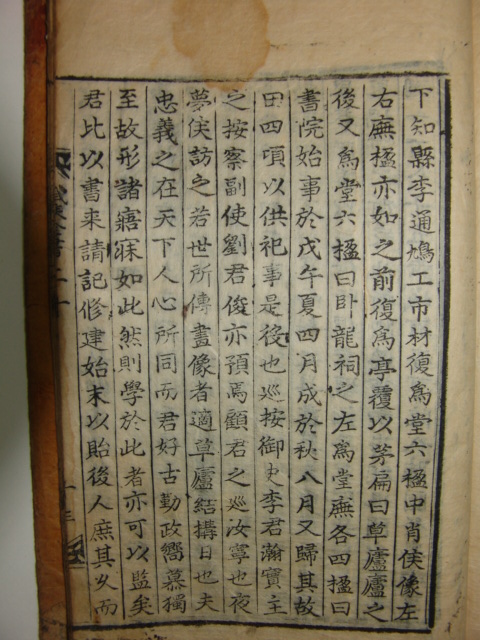 下知縣李通鳩工市材復爲堂六楹中肖侯像左
右廡楹亦如之前復爲亭覆以茅扁曰草廬廬之
後又爲堂六楹曰臥龍祠之左爲堂廡各四楹曰
書院始事於戊午夏四月成於秋八月又歸其故
田四頃以供祀事是後也巡按御史李君瀚實主
之按察副使劉君俊亦預焉顧君之巡汝寧也夜
夢侯訪之若世所傳畫像者適草廬結搆日也夫
忠義之在天下人心所同而君好古勤政嚮慕獨
至故形諸寤寐如此然則學於此者亦可以監矣
君比以書來請記修建始末以貽後人庶其久而